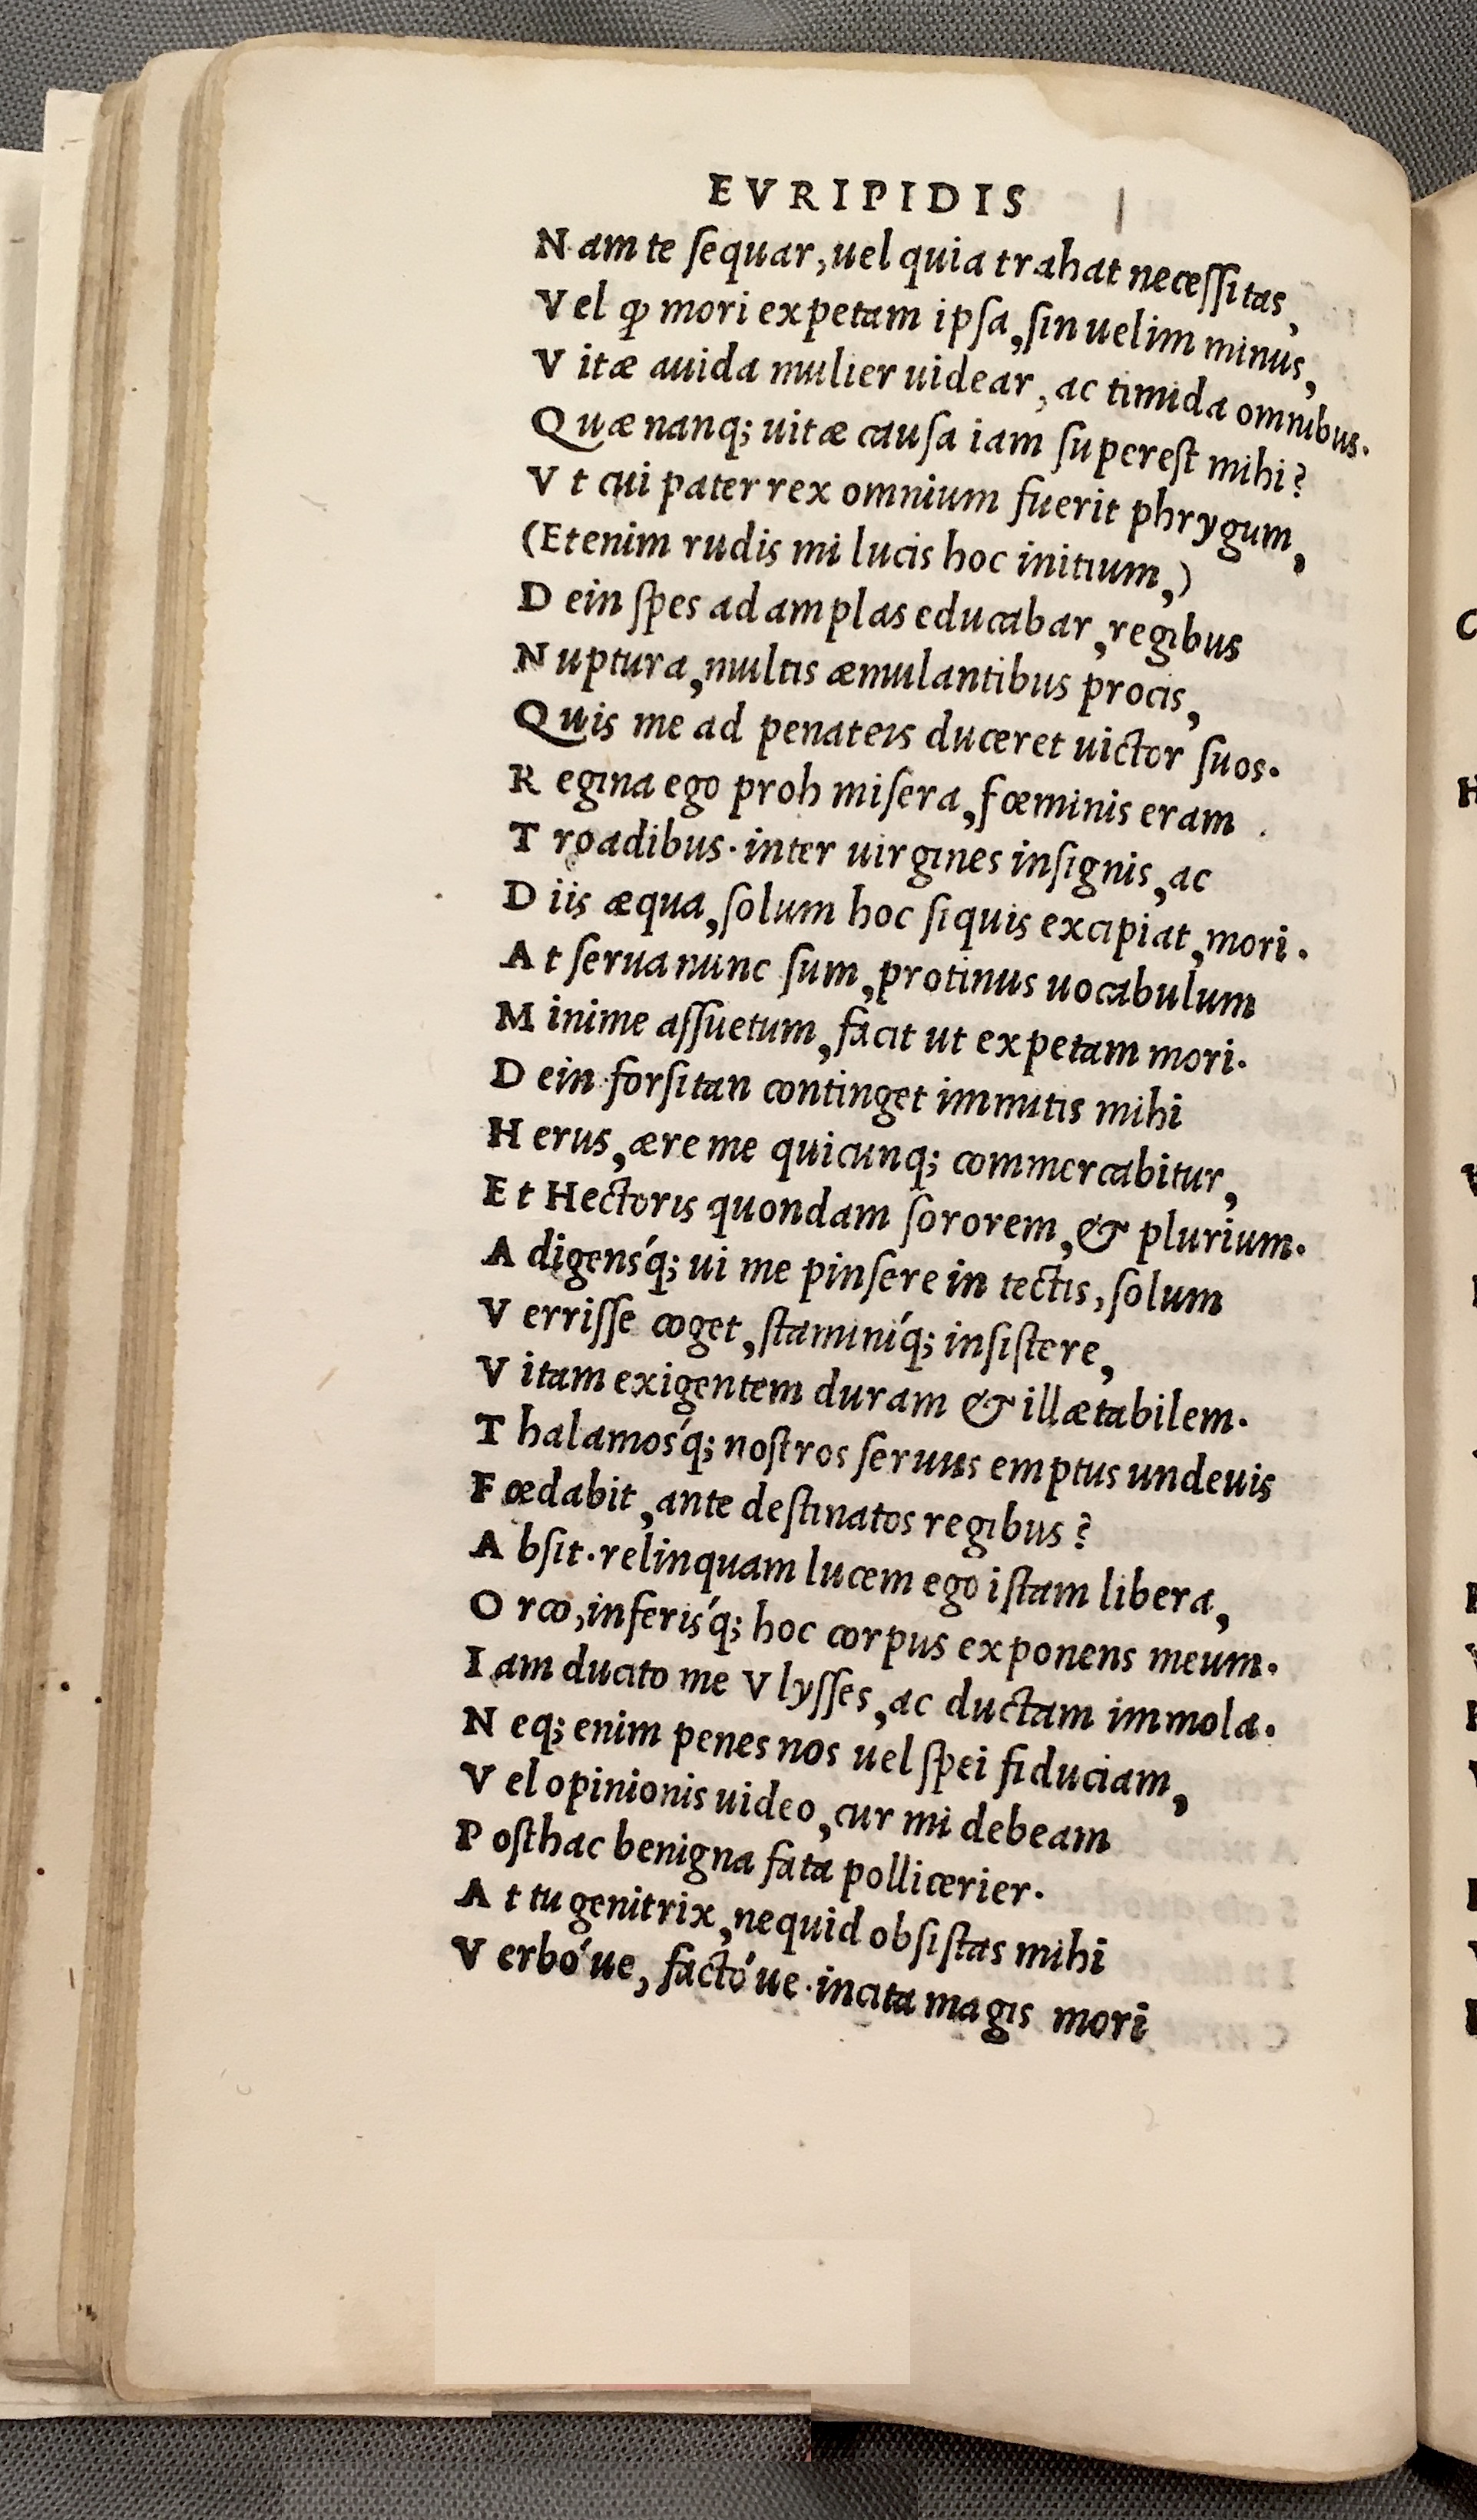 EVRIPIDIS
N am te ſequar, uel quia trahat neceſſitas,
V el ꝙ mori expetam ipſa, ſin uelim minus,
V itæ auida mulier uidear, ac timida omnibus.
Q uæ nanq; uitæ cauſa iam ſupereſt mihi?
V t cui pater rex omnium fuerit phrygum,
(Etenim rudis mi lucis hoc initium,)
D ein ſpes ad amplas educabar, regibus
N uptura, multis æmulantibus procis,
Q uis me ad penateis duceret uictor ſuos.
R egina ego proh miſera, fœminis eram
T roadibus. inter uirgines inſignis, ac
D iis æqua, ſolum hoc ſi quis excipiat, mori.
A t ſerua nunc ſum, protinus uocabulum
M inime aſſuetum, facit ut expetam mori.
D ein forſitan continget immitis mihi
H erus, ære me quicunq; commercabitur,
E t Hectoris quondam ſororem, & plurium.
A digens´q; ui me pinſere in tectis, ſolum
V erriſſe coget, ſtamini´q; inſiſtere,
V itam exigentem duram & illætabilem.
T halamos´q; noſtros ſeruus emptus undeuis
F œdabit, ante deſtinatos regibus?
A bſit. relinquam lucem ego iſtam libera,
O rco, inferis´q; hoc corpus exponens meum.
I am ducito me Vlyſſes, ac ductam immola.
N eq; enim penes nos uel ſpei fiduciam,
V el opinionis uideo, cur mi debeam
P oſthac benigna fata pollicerier.
A t tu genitrix, nequid obſiſtas mihi
V erbo´ue, facto´ue. incita magis mori